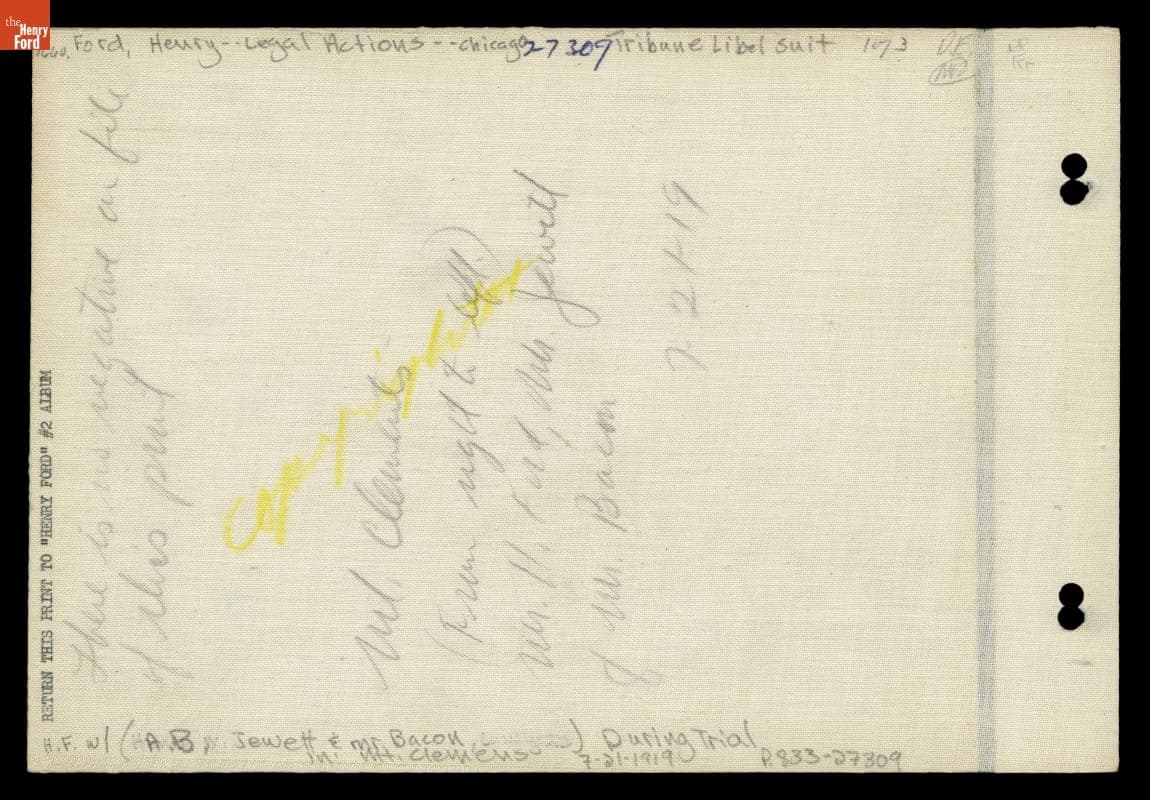 the
Henry
Ford
1660. Ford, Henry--Legal Actions--Chicago 27309 Tribune Libel suit 1 of 3 D.F.
RETURN THIS PRINT TO "HENRY FORD" #2 ALBUM
There is no negative on file
of this print
Copy
Mt. Clemens
(From right to left.)
Mr. H. Ford, Mr. Jewett
& Mr. Bacon
7-21-19
H.F. w/ (A B Jewett & mr Bacon, ) During Trial
in Mt. Clemens 7-21-1919 P.833-27309